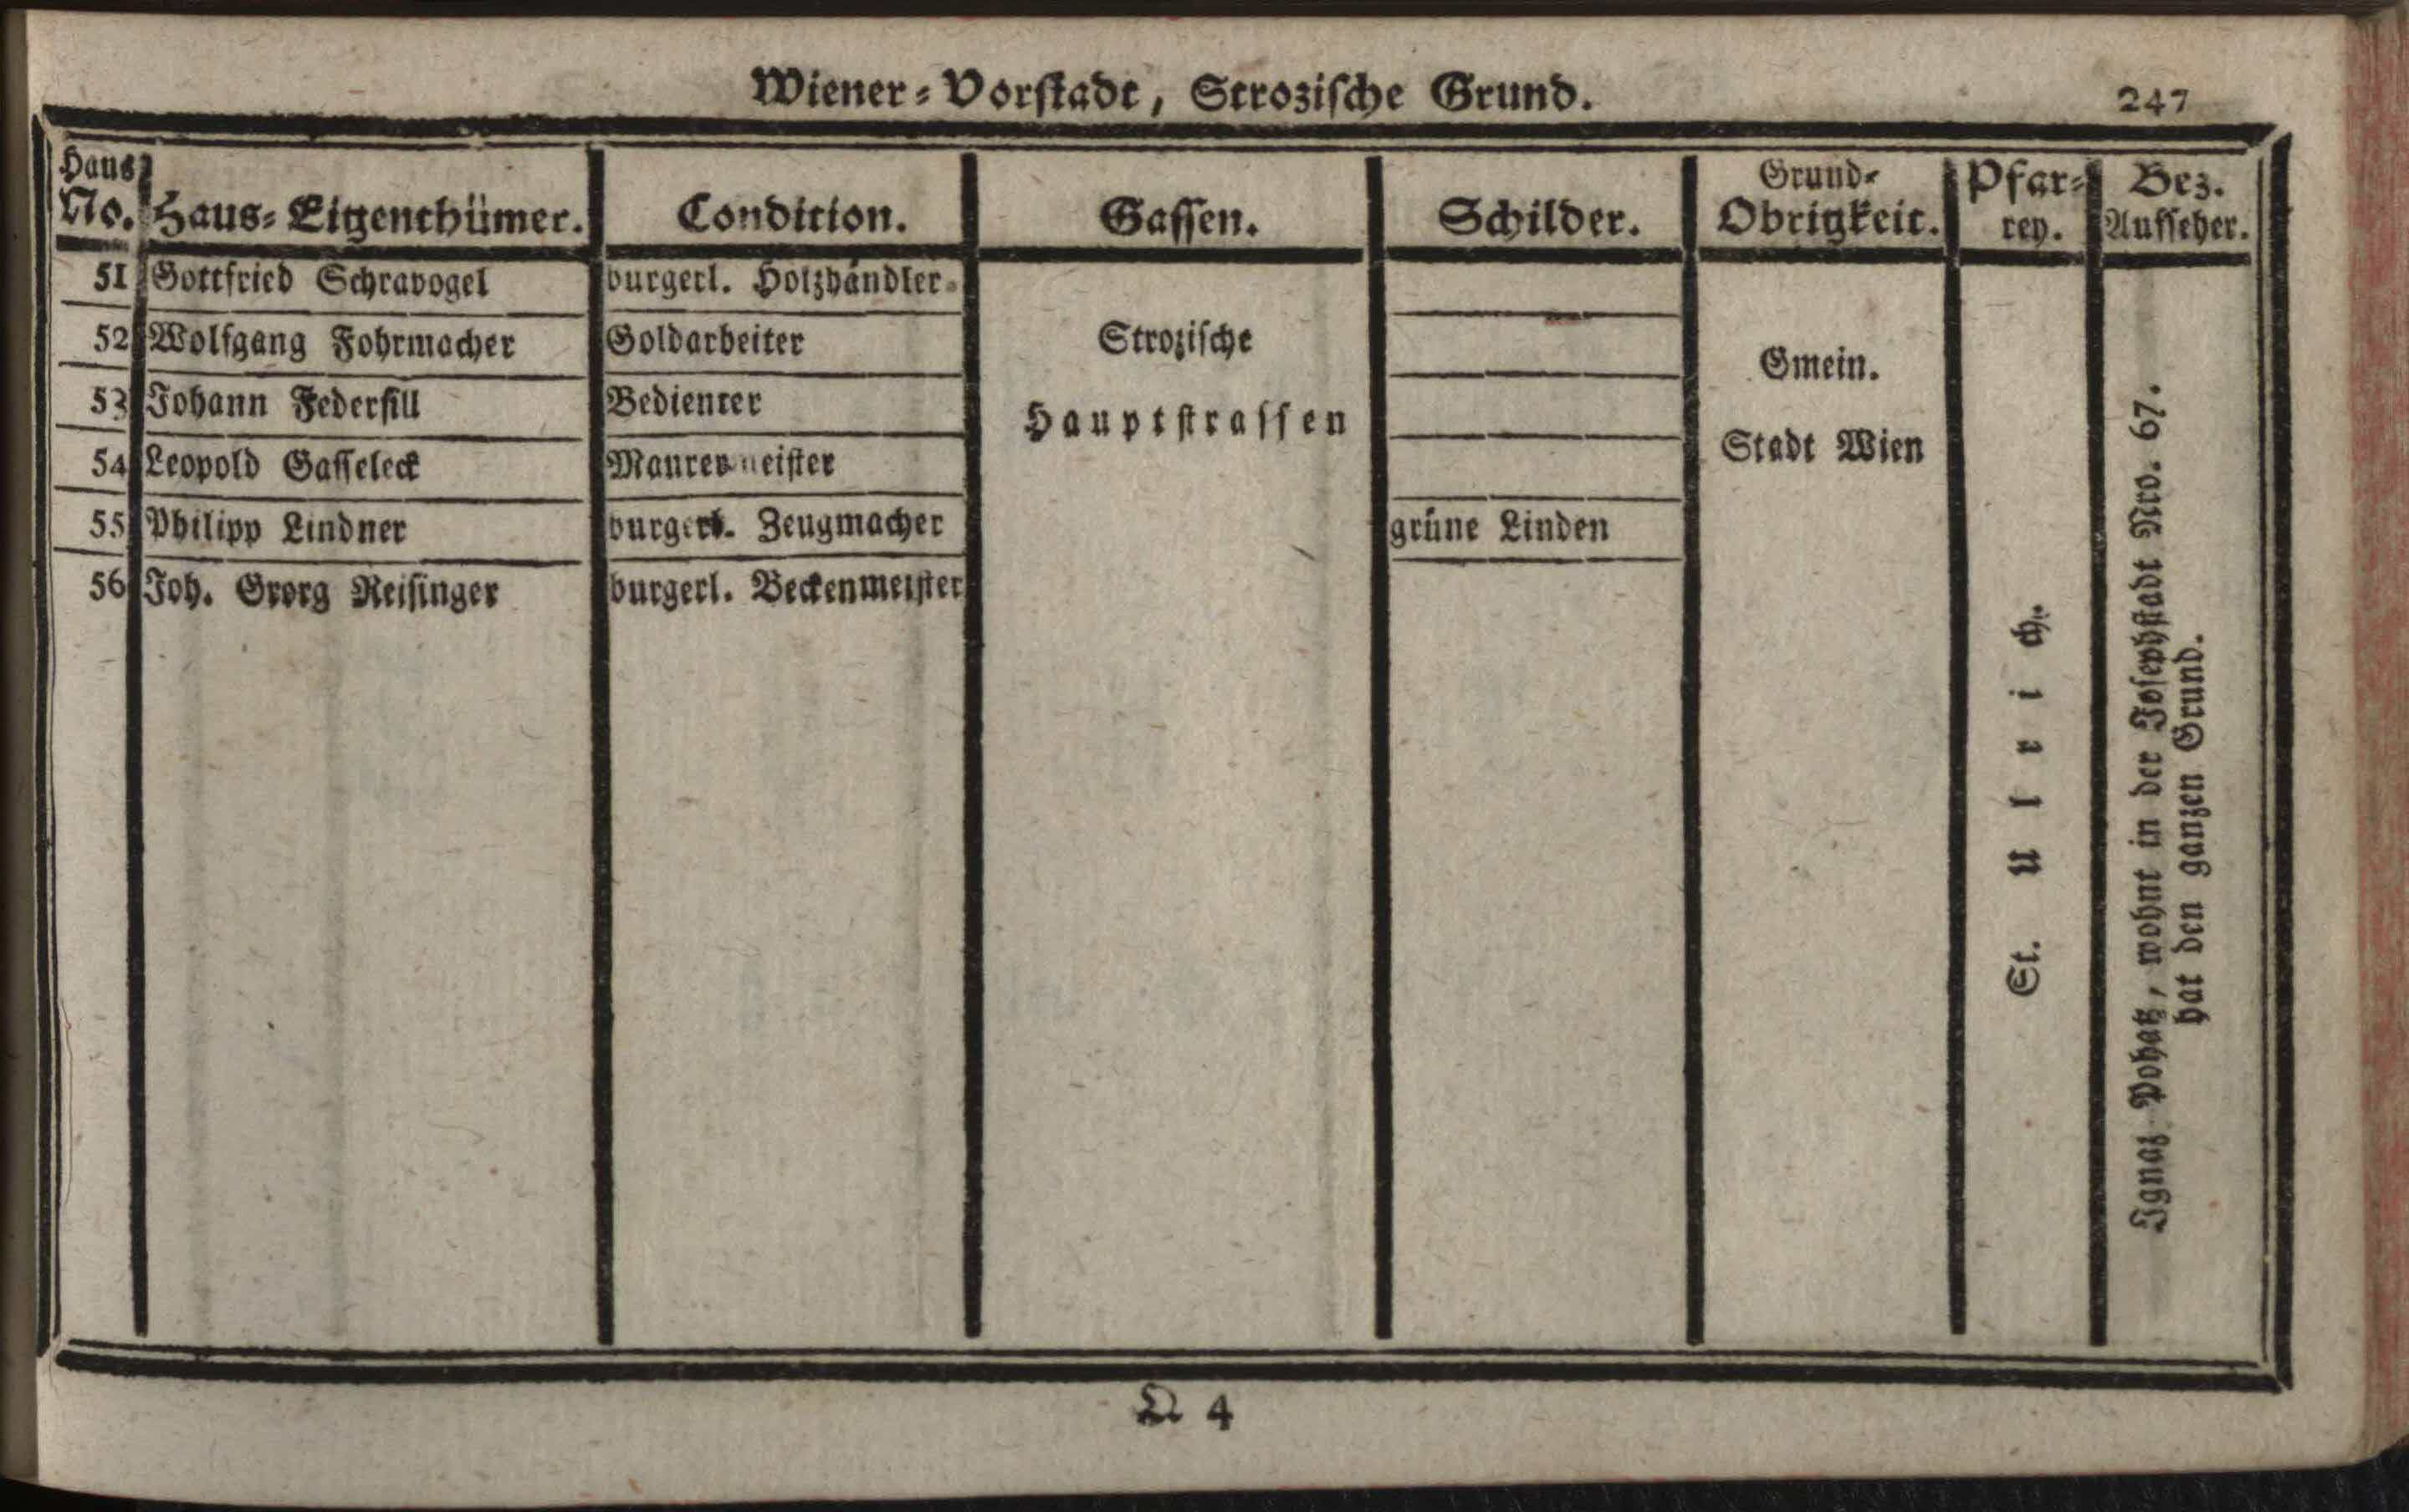 Wiener-Vorstadt, Strozische Grund.
247
Haus No.
Haus-Eigenthümer.
Condition.
Gassen.
Schilder.
Grund-Obrigkeit.
Pfar-rey.
Bez. Aufseher.
51 Gottfried Schravogel burgerl. Holzhändler
52 Wolfgang Fohrmacher Goldarbeiter
53 Johann Federsill Bedienter
54 Leopold Gasseleck Maurermeister
55 Philipp Lindner burgerl. Zeugmacher grüne Linden
56 Joh. Georg Reisinger burgerl. Beckenmeister
Strozische
Hauptstrassen
Gmein.
Stadt Wien
St. Ulrich.
Ignaz Pohatz, wohnt in der Josephstadt Nro. 67.
hat den ganzen Grund.
Q 4